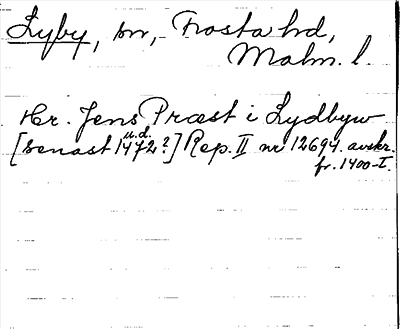 Lyby, sn, Frosta hd,
Malm. l.
Hr. Jens Præst i Lydbyw
u.d.
[senast 1472?] Rep. II nr 12694. avskr.
fr. 1400-t.